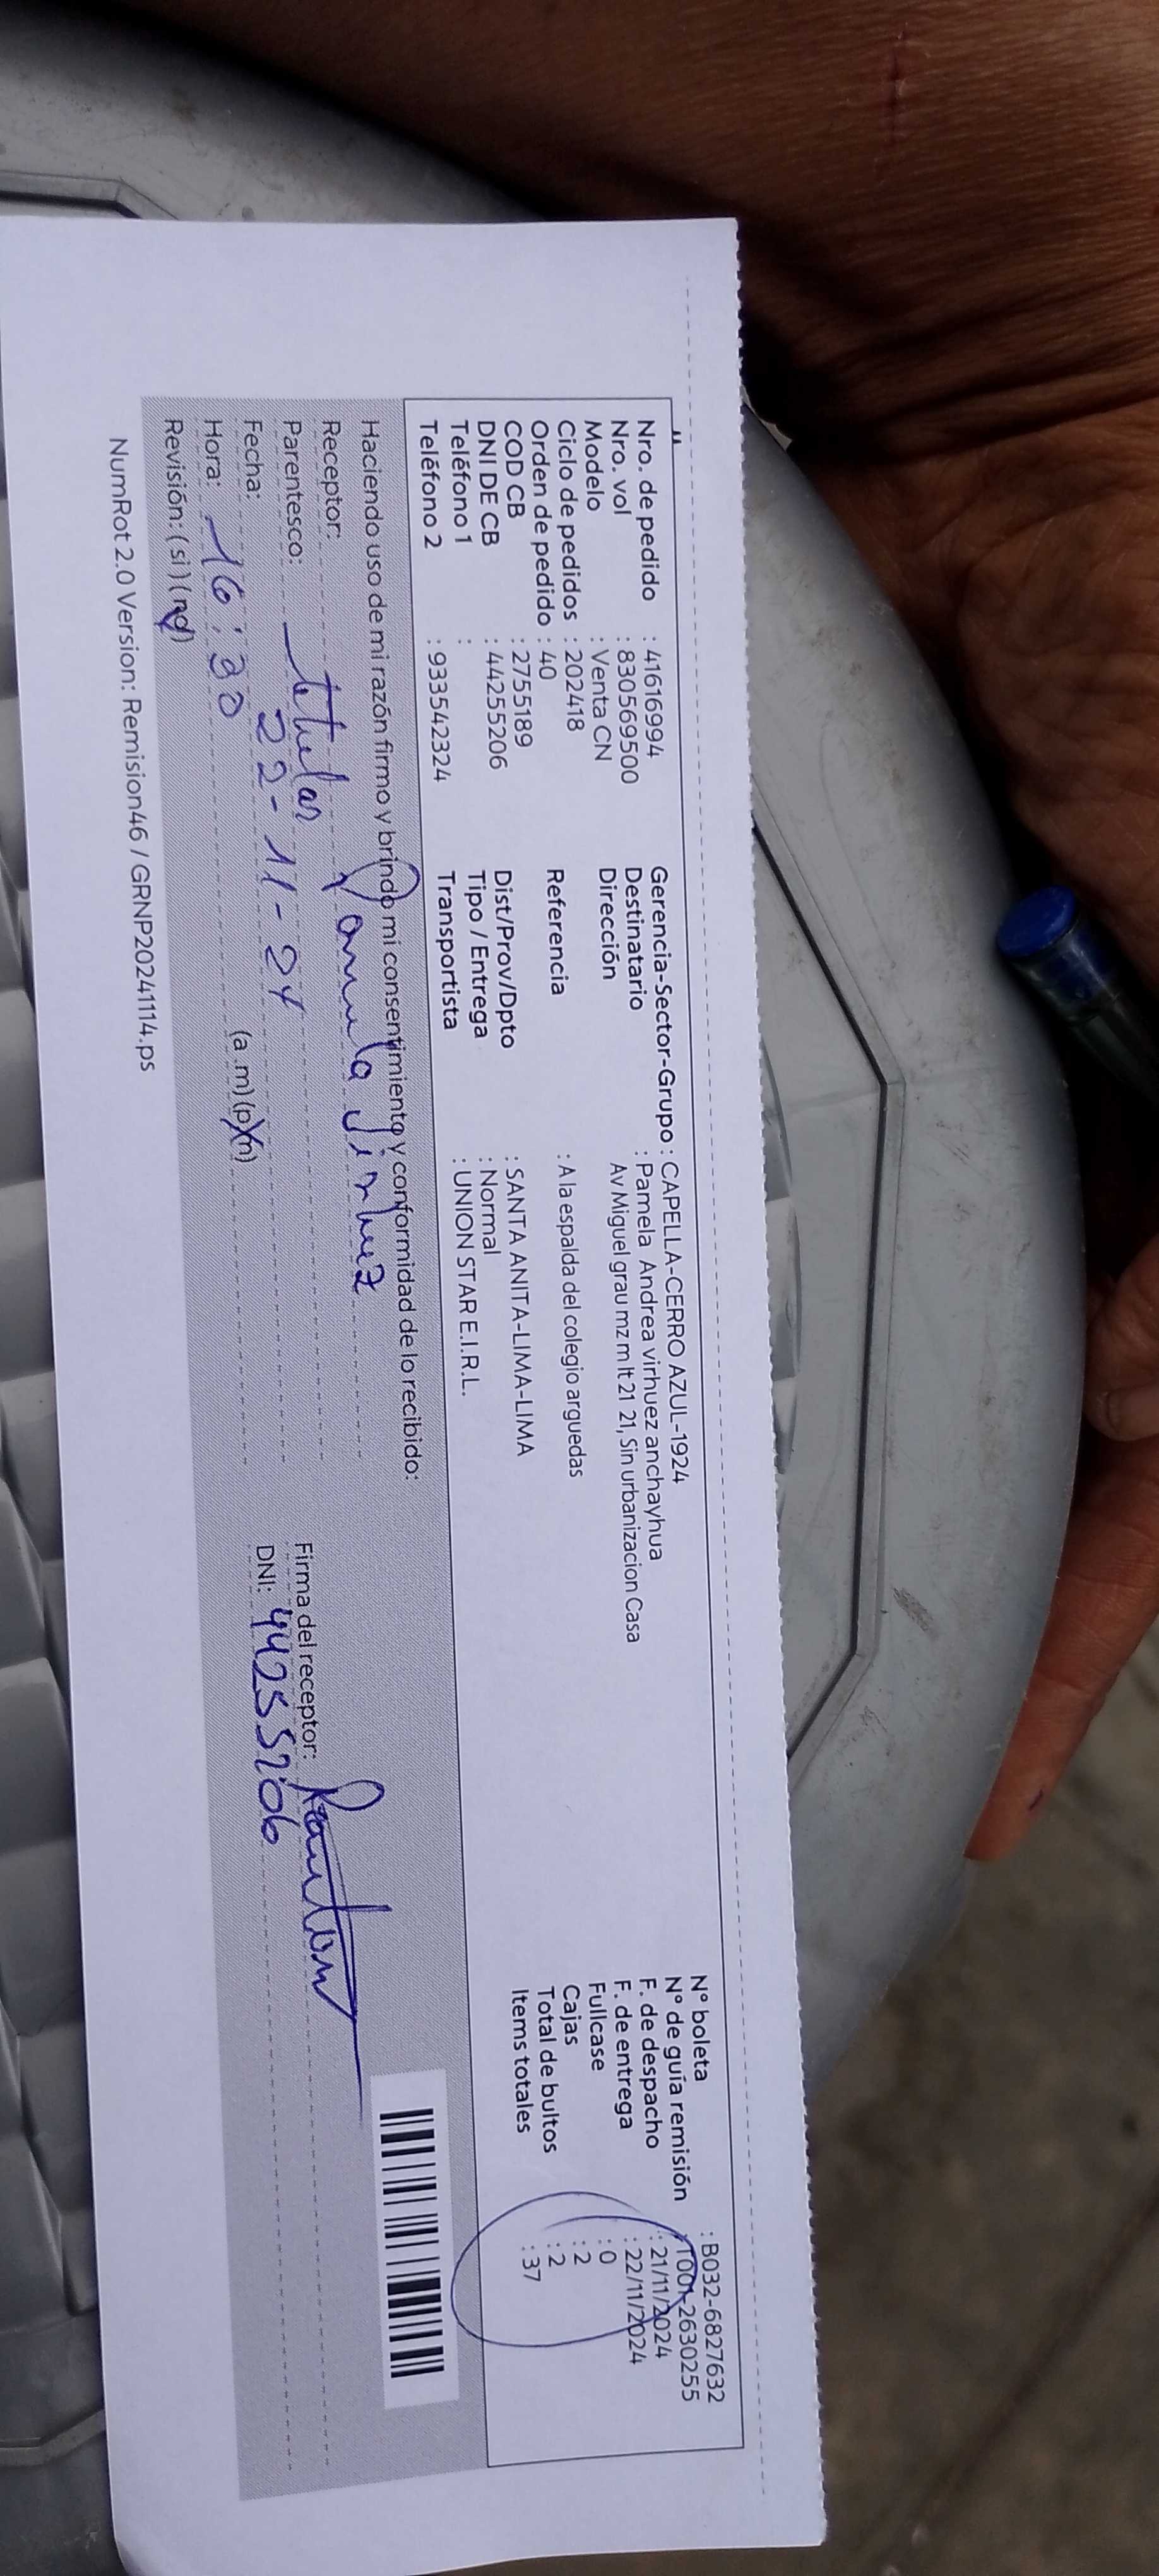 Nro. de pedido : 41616994
Nro. vol : 830569500
Modelo : Venta CN
Ciclo de pedidos : 202418
Orden de pedido : 40
COD CB : 2755189
DNI DE CB : 44255206
Teléfono 1 :
Teléfono 2 : 933542324
Gerencia-Sector-Grupo : CAPELLA-CERRO AZUL-1924
Destinatario : Pamela Andrea virhuez anchayhua
Dirección Av Miguel grau mz m lt 21 21, Sin urbanizacion Casa
Referencia : A la espalda del colegio arguedas
Dist/Prov/Dpto : SANTA ANITA-LIMA-LIMA
Tipo / Entrega : Normal
Transportista : UNION STAR E.I.R.L.
N° boleta : B032-6827632
N° de guía remisión : T001-2630255
F. de despacho : 21/11/2024
F. de entrega : 22/11/2024
Fullcase : 0
Cajas : 2
Total de bultos : 2
Items totales : 37
Haciendo uso de mi razón firmo y brindo mi consentimiento y conformidad de lo recibido:
Receptor: Pamela
Parentesco: titular
Fecha: 22-11-24
Hora: 16:30 (a .m) (p.m)
Revisión: ( si ) ( no )
Firma del receptor:
DNI: 44255206
NumRot 2.0 Version: Remision46 / GRNP20241114.ps